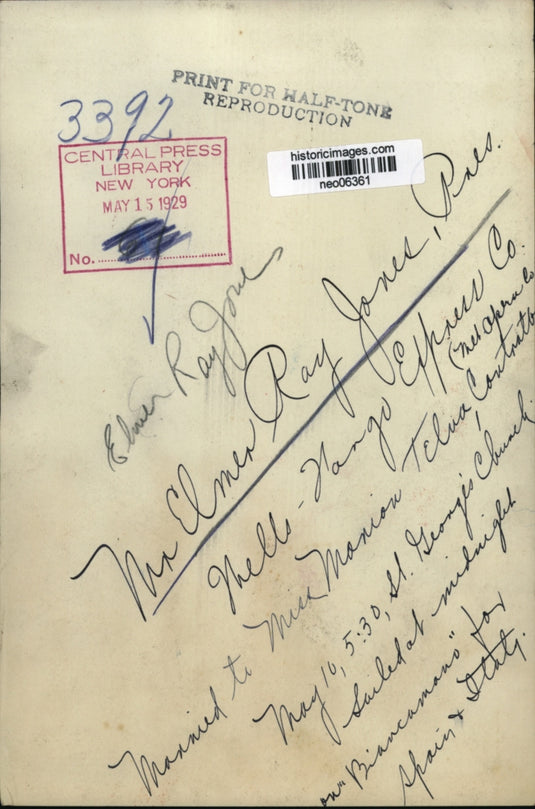 PRINT FOR HALF-TONE
REPRODUCTION
3392
historicimages.com
neo06361
CENTRAL PRESS
LIBRARY
NEW YORK
MAY 15 1929
No.
Elmer Ray Jones
Mr Elmer Ray Jones, Pres.
Wells-Fargo Express Co.
Married to Miss Marion Telva, Contralto
(Met Opera Co
May 10, 5:30, St. George's Church.
Sailed at midnight
on "Biancamano" for
Spain & Italy.